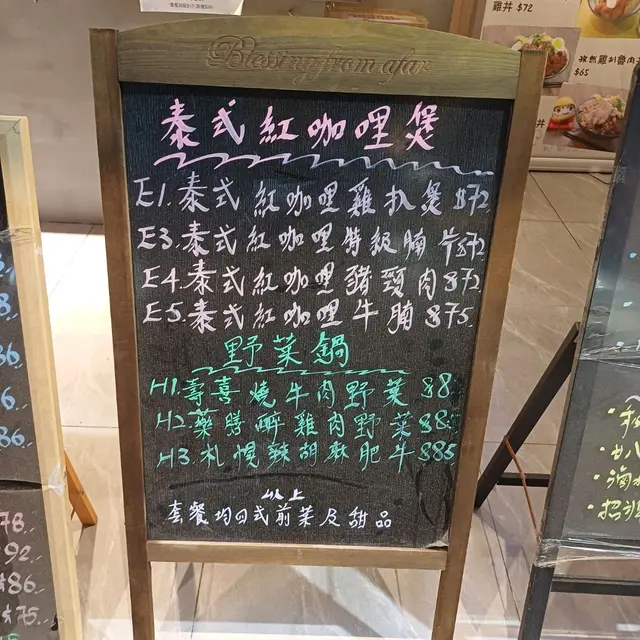 雞丼 $72
$65
Blessing from afar
泰式紅咖哩煲
E1.泰式紅咖哩雞扒煲$72
E3.泰式紅咖哩特級腩片$72
E4.泰式紅咖哩豬頸肉$72
E5.泰式紅咖哩牛腩$75.
野菜鍋
H1.壽喜燒牛肉野菜$8
H2.藥膳醉雞肉野菜$8
H3.札幌辣胡麻肥牛$85
以上
套餐均日式前菜及甜品
78.
92.
$86
$75.